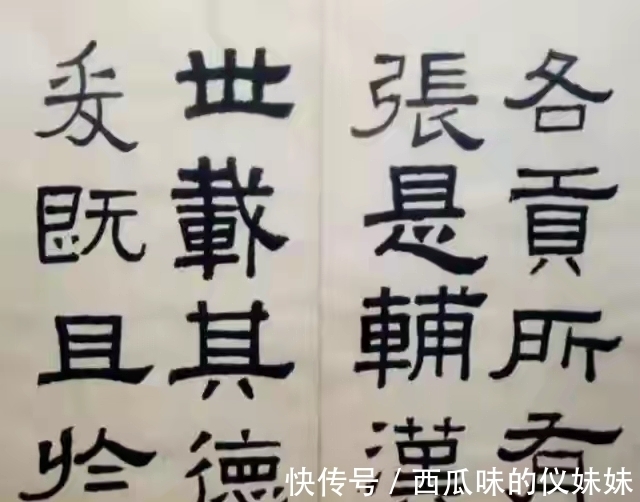 各貢所有
張是輔漢
世載其德
爰既且於
快传号/西瓜味的仪妹妹